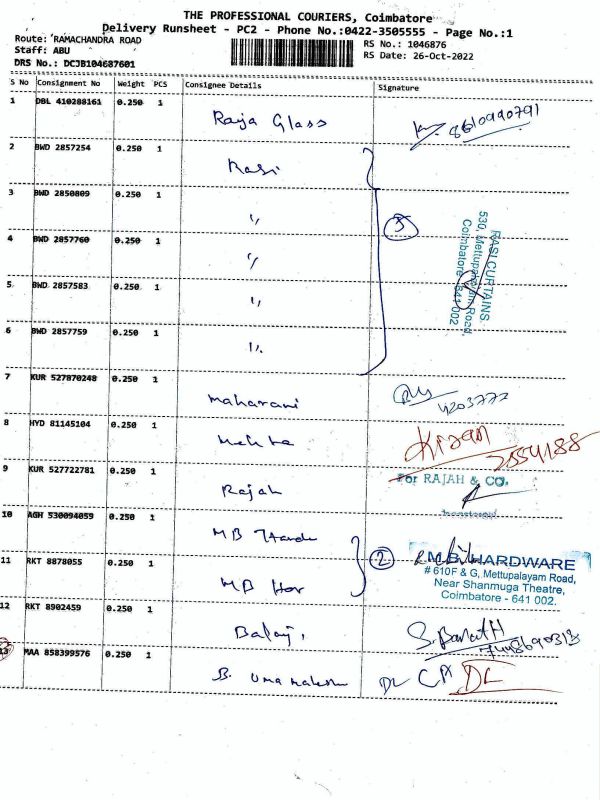 THE PROFESSIONAL COURIERS, Coimbatore
Delivery Runsheet - PC2 - Phone No.:0422-3505555 - Page No.:1
Route: RAMACHANDRA ROAD
Staff: ABU
DRS No.: DCJB104687601
RS No.: 1046876
RS Date: 26-Oct-2022
S No Consignment No Weight PCS Consignee Details Signature
1 DBL 410288161 0.250 1 Raja Glass 8610990791
2 BWD 2857254 0.250 1 Rasi
3 BWD 2850809 0.250 1 "
4 BWD 2857760 0.250 1 "
5 BWD 2857583 0.250 1 "
6 BWD 2857759 0.250 1 "
5
RASI CURTAINS
530, Mettupalayam Road,
Coimbatore - 641 002
7 KUR 527870248 0.250 1 Maharani 4203777
8 HYD 81145104 0.250 1 Mehta Kiran 2554188
9 KUR 527722781 0.250 1 Rajah
For RAJAH & CO.
10 AGH 530094059 0.250 1 MB Hardw
11 RKT 8878055 0.250 1 MB Har
2
M.B. HARDWARE
# 610F & G, Mettupalayam Road,
Near Shanmuga Theatre,
Coimbatore - 641 002.
12 RKT 8902459 0.250 1 Balaji S. Barath
13 MAA 858399576 0.250 1 B. Umamahesh DL DL